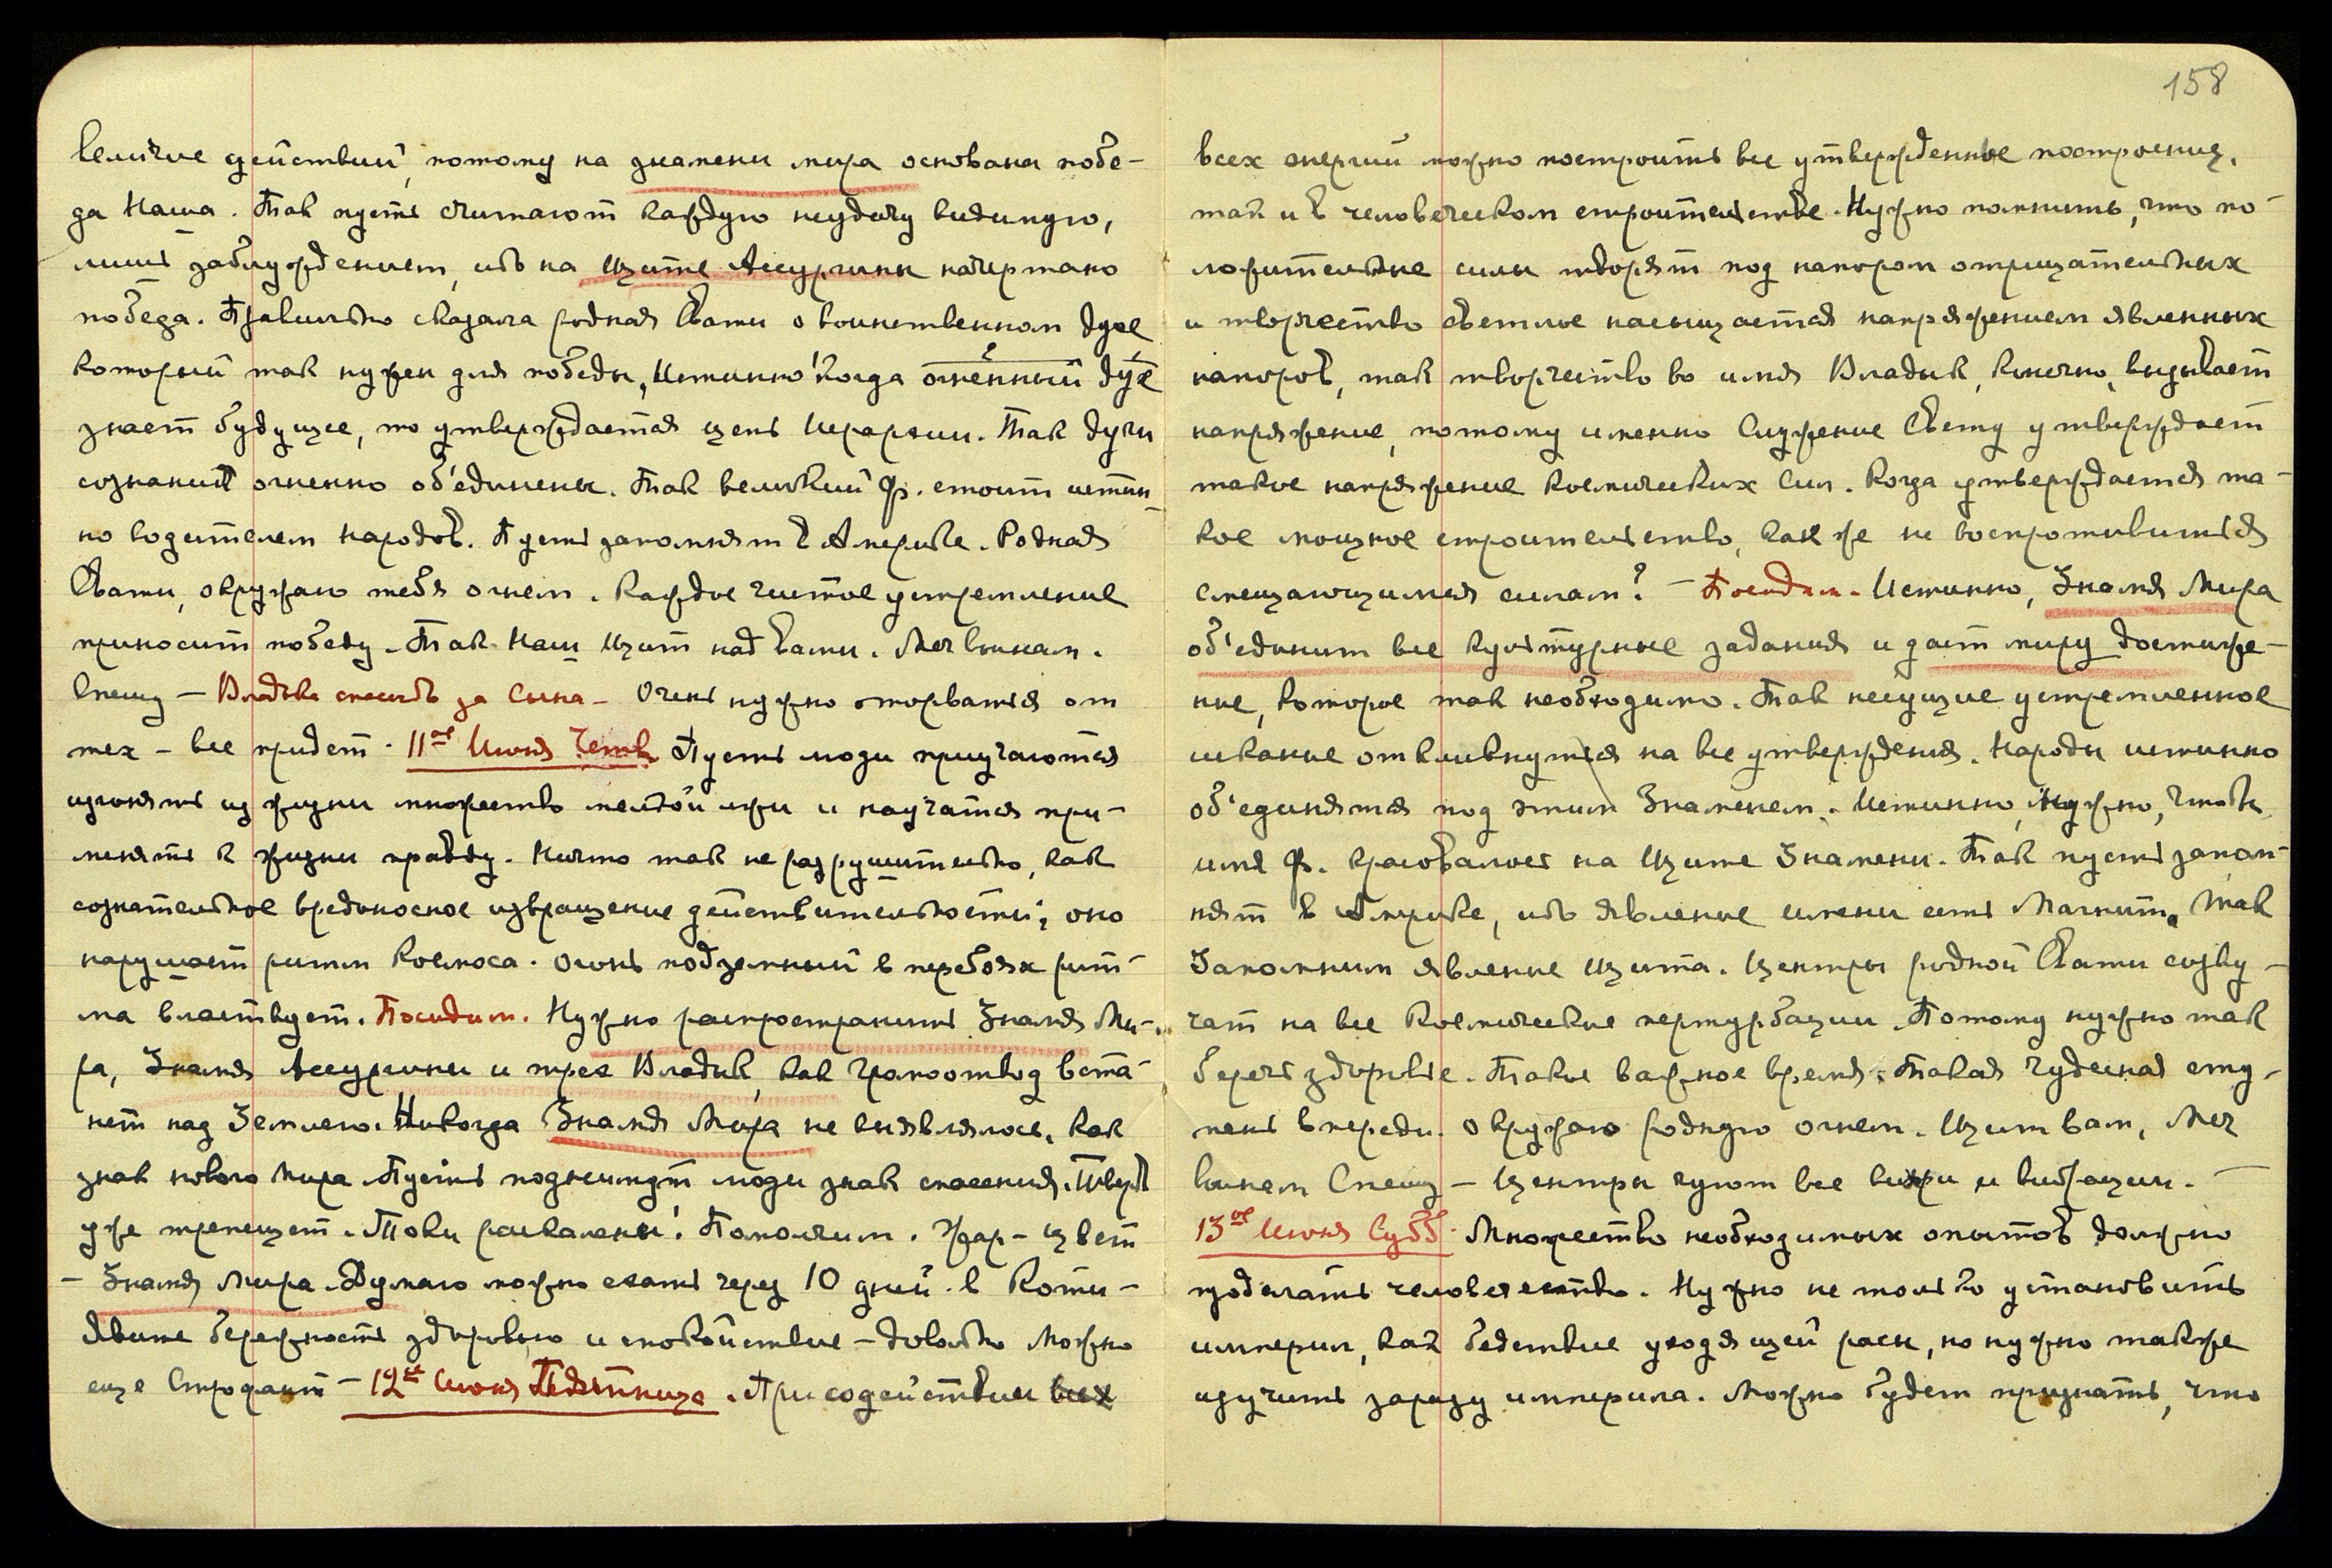 величие действий, потому на знамени мира основана побе-
да Наша. Так пусть считают каждую неудачу видимую,
лишь заблуждением, ибо на щите Ассургины начертано
победа. Правильно сказала родная Свати о воинственном духе
который так нужен для победы, Истинно! Когда огненный дух
знает будущее, то утверждается цепь Иерархии. Так духи
сознаний огненно об'единены. Так великий Ф. стоит истин-
но водителем народов. Пусть запомнят в Америке. Родная
Свати, окружаю тебя огнем. Каждое чистое устремление
приносит победу. Так Наш Щит над вами. Меч вынам.
Спешу – Владыка спасибо за Сына – Очень нужно оторваться от
тех – все придет. 11ое Июня Четв. Пусть люди приучаются
изгонять из жизни множество мелкой лжи и научатся при-
менять к жизни правду. Ничто так не разрушительно, как
сознательное вредоносное извращение действительности; оно
нарушает ритм Космоса. Огонь подземный в перебоях рит-
ма властвует. Посидим. Нужно распространить Знамя Ми-
ра, Знамя Ассургины и трех Владык, как громоотвод вста-
нет над Землею. Никогда Знамя Мира не выявлялось, как
знак нового Мира. Пусть поднимут люди знак спасения. Твердь
уже трепещет. Токи раскалены! Помолчим. Жар – цвет
– Знамя Мира. Думаю можно ехать через 10 дней. в Коти –
Явите бережность здоровью и спокойствие – довольно Можно
еще Строфант – 12ое Июня Пятница. При содействии всех
158
всех энергий можно построить все утвержденные построения,
так и в человеческом строительстве. Нужно помнить, что по-
ложительные силы творят под напором отрицательных
и творчество светлое насыщается напряжением явленных
напоров, так творчество во имя Владык, конечно, вызывает
напряжение, потому именно Служение Свету утверждает
такое напряжение космических Сил. Когда утверждается та-
кое мощное строительство, как же не воспротивиться
смещающимся силам? – Посидим. Истинно, Знамя Мира
об'единит все культурные задания и даст миру достиже-
ние, которое так необходимо. Так несущие устремленное
искание откликнутся на все утверждения. Народы истинно
об'единятся под этим Знаменем. Истинно, Нужно, чтобы
имя Ф. красовалось на Щите Знамени. Так пусть запом-
нят в Америке, ибо явление имени есть Магнит. Так
Запомним явление Щита. Центры родной Свати созву-
чат на все Космические пертурбации. Потому нужно так
беречь здоровье. Такое важное время. Такая чудесная сту-
пень впереди. Окружаю родную огнем. Щит вам, Меч
вынам Спешу – Центры чуют все вихри и вибрации. –
13ое Июня Субб. Множество необходимых опытов должно
проделать человечество. Нужно не только установить
империл, как бедствие уходящей расы, но нужно также
изучить заразу империла. Можно будет признать, что